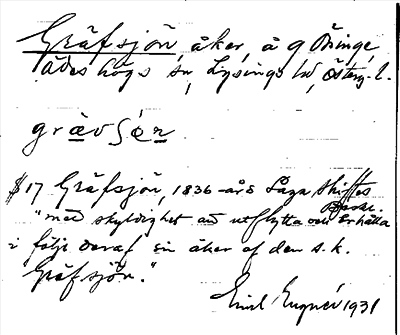 Gräfsjön, åker, å g Öninge,
Ödeshögs sn, Lysings hd, Österg. l.
grävsjön
§ 17 Gräfsjön, 1836-års Laga Skiftes
Beskr.
"med skyldighet att utflytta och Erhålla
i följe deraf sin åker af den s.k.
Gräfsjön."
Emil 1931